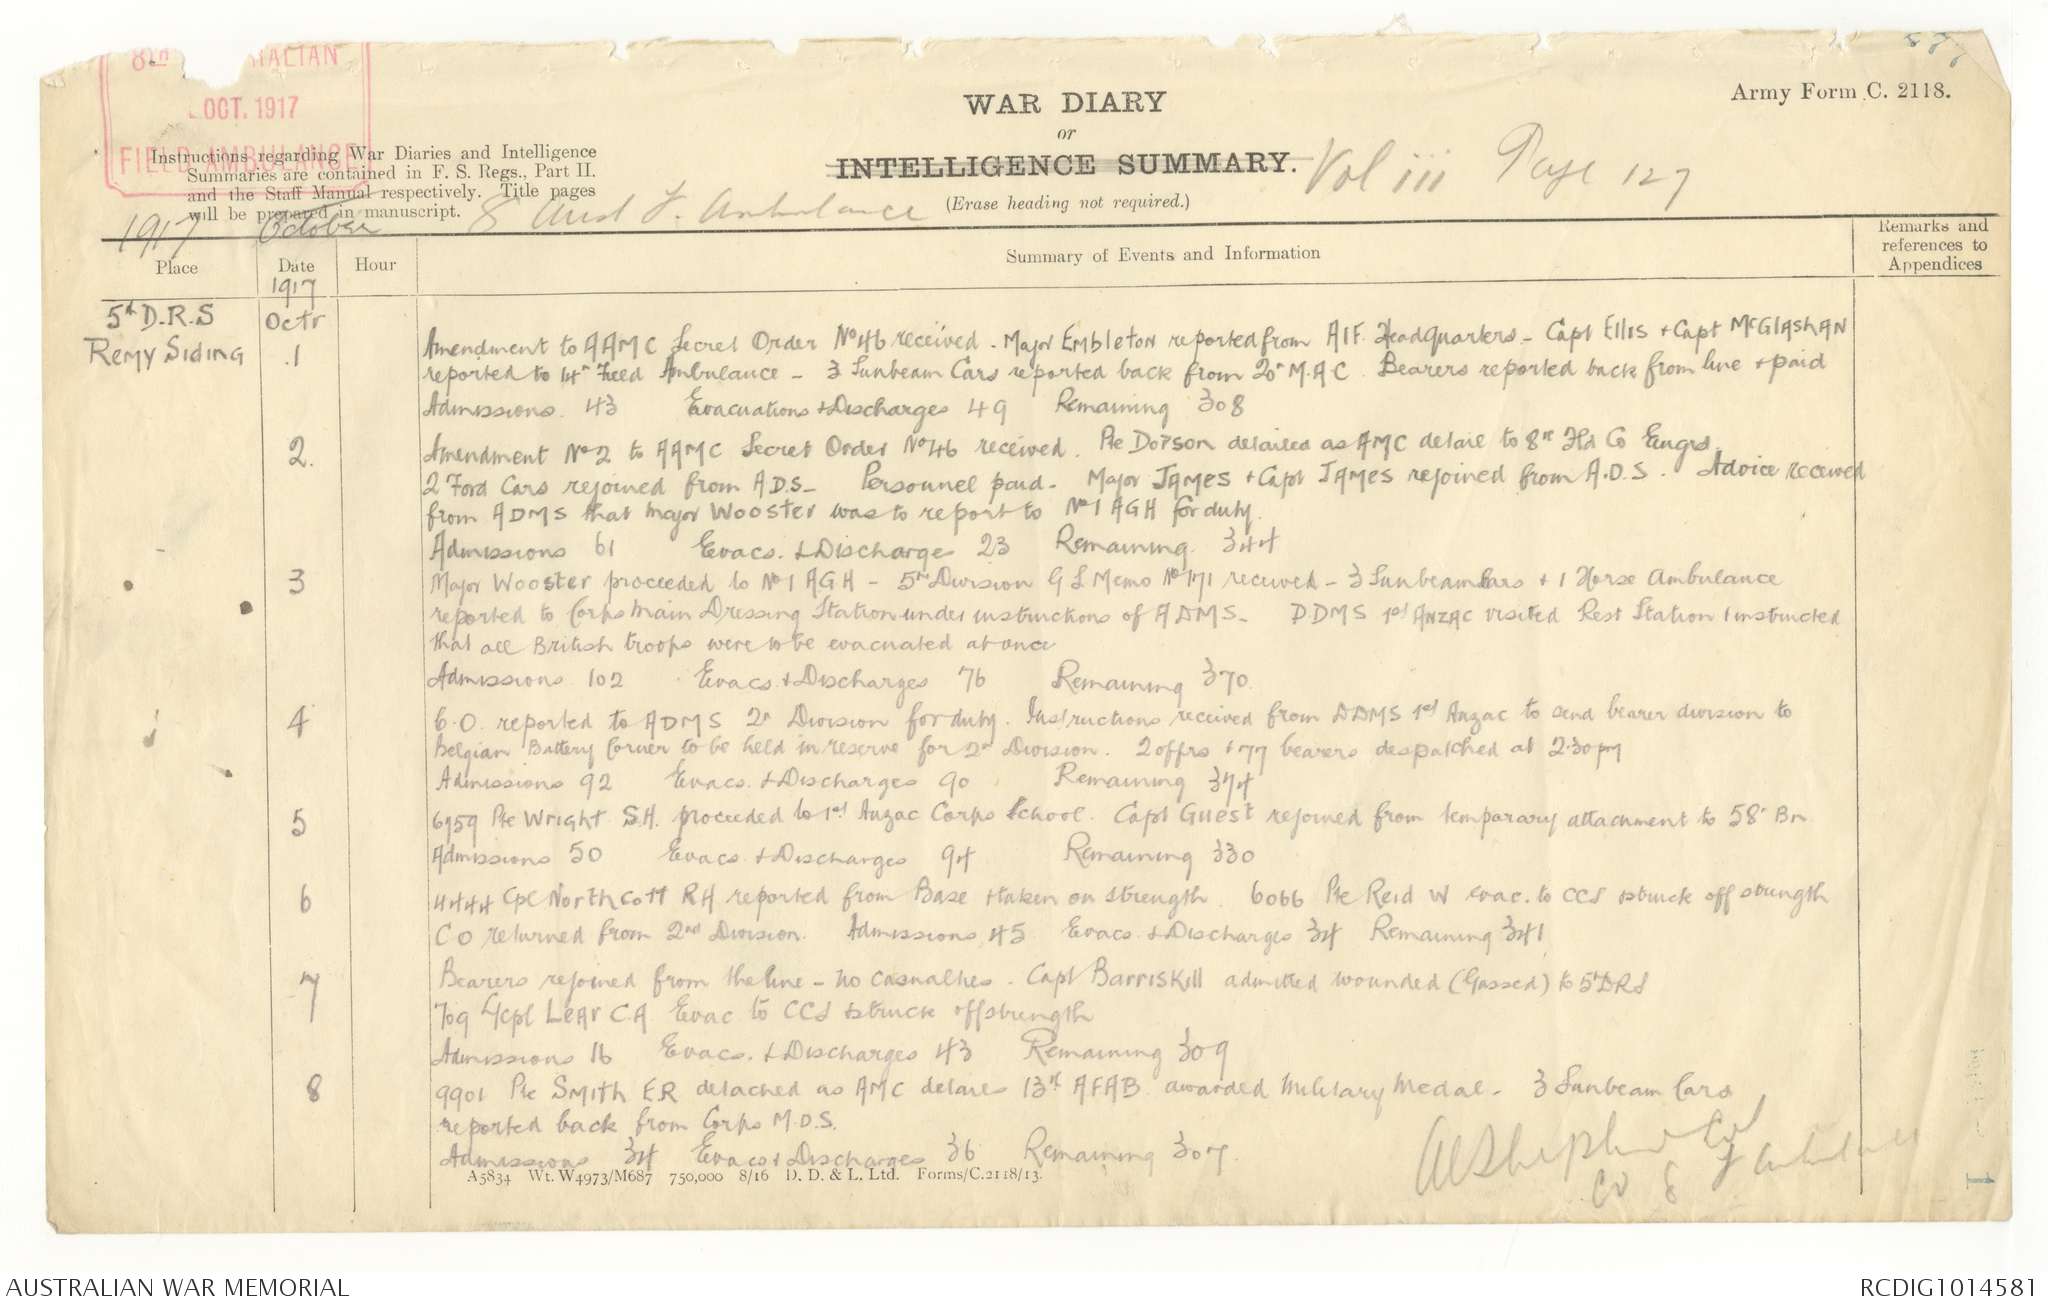 8TH AUSTRALIAN
OCT. 1917
FIELD AMBULANCE
Army Form C. 2118.
WAR DIARY
or
INTELLIGENCE SUMMARY.
(Erase heading not required.)
Vol iii Page 127
Instructions regarding War Diaries and Intelligence
Summaries are contained in F. S. Regs., Part II.
and the Staff Manual respectively. Title pages
will be prepared in manuscript.
1917 October 8 Aust F. Ambulance
Place
Date
Hour
Summary of Events and Information
Remarks and
references to
Appendices
1917
5th D.R.S Octr
Remy Siding .1 Amendment to AAMC Secret Order No 46 received - Major Embleton reported from AIF. Headquarters - Capt Ellis + Capt McGlashan
reported to 14th Field Ambulance - 3 Sunbeam Cars reported back from 20th M.A.C. Bearers reported back from line + paid
Admissions 43 Evacuations + Discharges 49 Remaining 308
2. Amendment No 2 to AAMC Secret Order No 46 received. Pte Dobson detailed as AMC detail to 8th Fld Co Engrs.
2 Ford Cars rejoined from A.D.S - Personnel paid - Major James + Capt James rejoined from A.D.S. Advice received
from ADMS that Major Wooster was to report to No 1 AGH for duty.
Admissions 61 Evacs. + Discharges 23 Remaining 344
3 Major Wooster proceeded to No 1 AGH - 5th Division G S Memo No 171 received - 3 Sunbeam Cars + 1 Horse Ambulance
reported to Corps Main Dressing Station under instructions of ADMS - DDMS 1st Anzac visited Rest Station + instructed
that all British troops were to be evacuated at once
Admissions 102 Evacs. + Discharges 76 Remaining 370.
4 C.O. reported to ADMS 2n Division for duty. Instructions received from DDMS 1st Anzac to send bearer division to
Belgian Battery Corner to be held in reserve for 2nd Division. 2 offrs + 77 bearers despatched at 2.30 pm
Admissions 92 Evacs. + Discharges 90 Remaining 374
5 6959 Pte Wright S.H. proceeded to 1st Anzac Corps School. Capt Guest rejoined from temporary attachment to 58th Bn.
Admissions 50 Evacs. + Discharges 94 Remaining 330
6 4444 Cpl Northcott RH reported from Base + taken on strength. 6066 Pte Reid W evac. to CCS + struck off strength
CO returned from 2nd Division. Admissions 45 Evacs. + Discharges 34 Remaining 341
7 Bearers rejoined from the line - no casualties. Capt Barriskill admitted wounded (Gassed) to 5th DRS
709 L/cpl Lear C.A. Evac to CCS + struck off strength
Admissions 16 Evacs. + Discharges 43 Remaining 309
8 9901 Pte Smith E.R detached as AMC details 13th AFAB awarded Military Medal - 3 Sunbeam Cars
reported back from Corps M.D.S.
Admissions 34 Evacs + Discharges 36 Remaining 307.
A5834 Wt. W4973/M687 750,000 8/16 D. D. & L. Ltd. Forms/C.2118/13.
AE Shepherd Col
CO 8 F Ambulance
AUSTRALIAN WAR MEMORIAL
RCDIG1014581